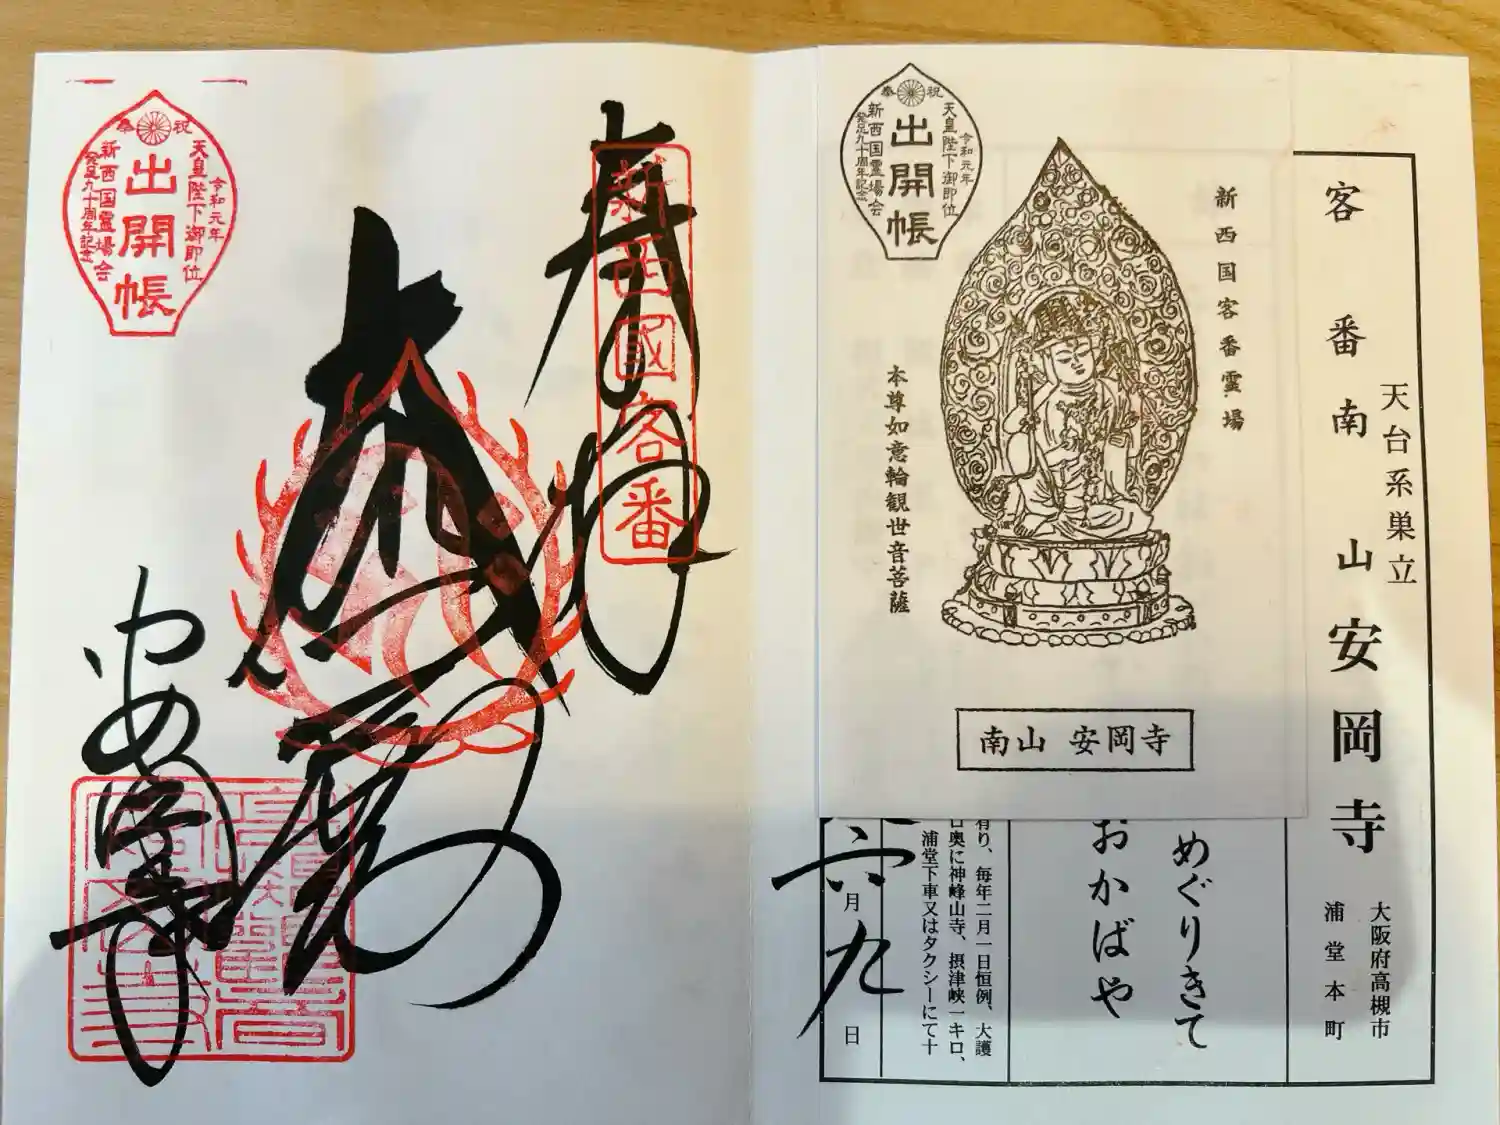 客番 南山 安岡寺
天台系巣立
大阪府高槻市
浦堂本町
めぐりきて
おかばや
有り、毎年二月一日恒例、大護
口奥に神峰山寺、摂津峡一キロ、
浦堂下車又はタクシーにて十
六月九日
新西国客番霊場
本尊如意輪観世音菩薩
南山 安岡寺
奉祝
令和元年
天皇陛下御即位
出開帳
新西国霊場会
発足九十周年記念
奉拝
新西國客番
安岡寺
奉祝
令和元年
天皇陛下御即位
出開帳
新西国霊場会
発足九十周年記念